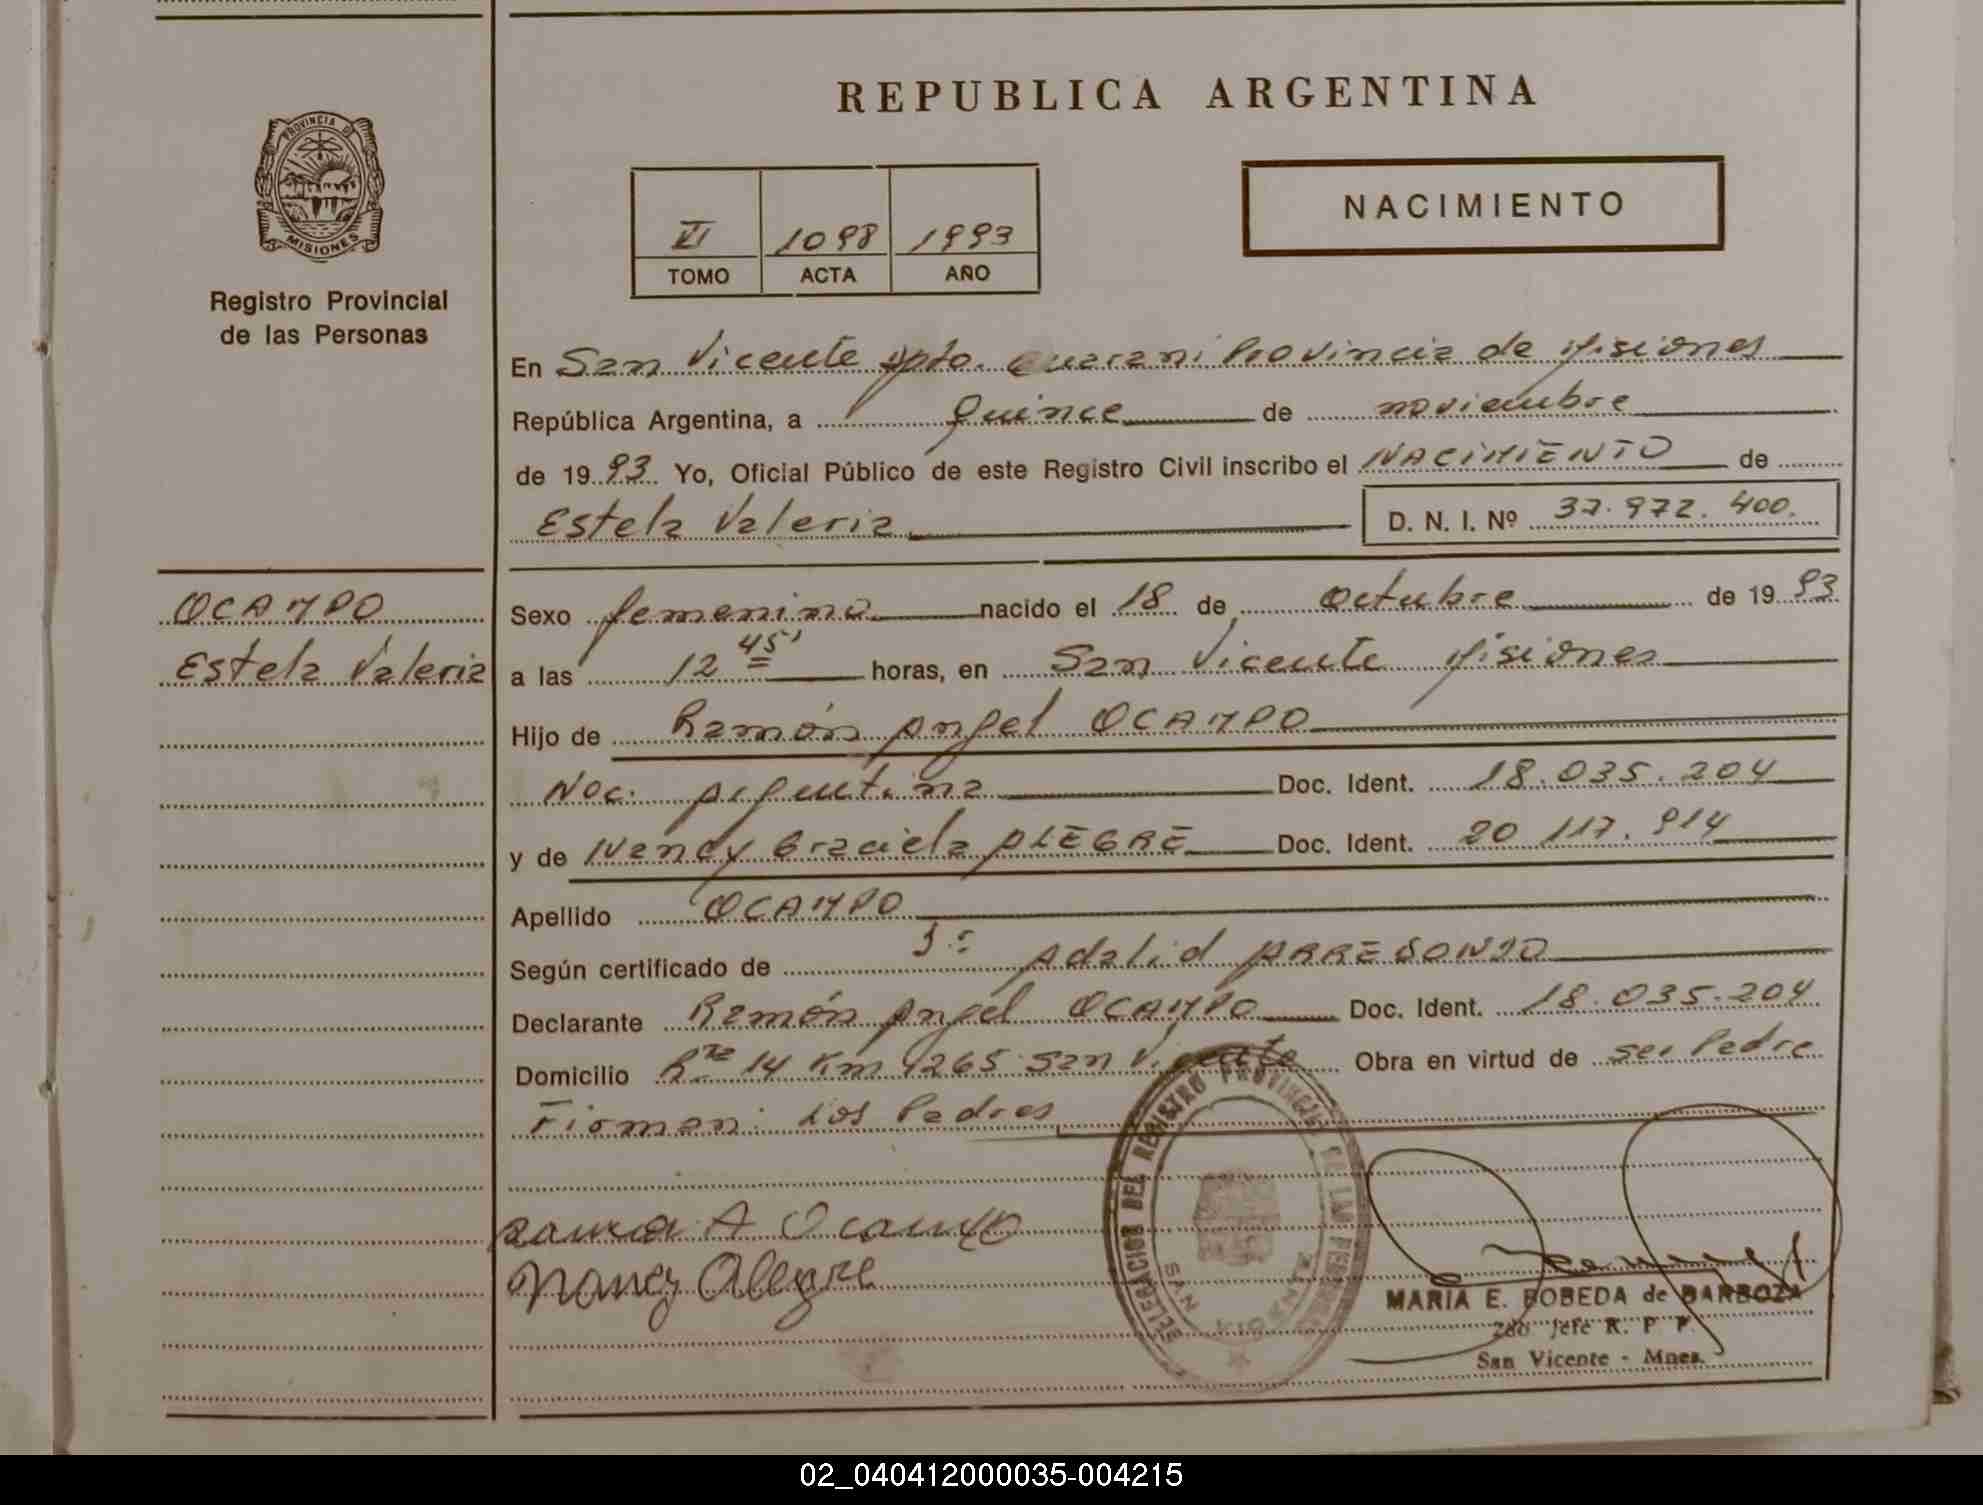 REPUBLICA ARGENTINA
PROVINCIA DE
MISIONES
Registro Provincial
de las Personas
VI 1098 1993
TOMO ACTA AÑO
NACIMIENTO
En San Vicente Dpto. Guarani Provincia de Misiones
República Argentina, a Quince de noviembre
de 19 93 Yo, Oficial Público de este Registro Civil inscribo el NACIMIENTO de
Estela Valeria D. N. I. Nº 37.972.400.
OCAMPO
Estela Valeria
Sexo femenino nacido el 18 de Octubre de 19 93
a las 12 45' horas, en San Vicente Misiones
Hijo de Ramón Angel OCAMPO
Nac. Argentina Doc. Ident. 18.035.204
y de Nancy Graciela ALEGRE Doc. Ident. 20 117.914
Apellido OCAMPO
Según certificado de Adalid
Declarante Ramón Angel OCAMPO Doc. Ident. 18.035.204
Domicilio Rta 14 Km 1265 San Vicente Obra en virtud de ser Padre
Firman: Los Padres
Ramon A Ocampo
Nancy Alegre
DELEGACION DEL REGISTRO PROVINCIAL DE LAS PERSONAS
SAN
MARIA E. BOBEDA de BARBOZA
2do Jefe R. P. P.
San Vicente - Mnes.
02_040412000035-004215